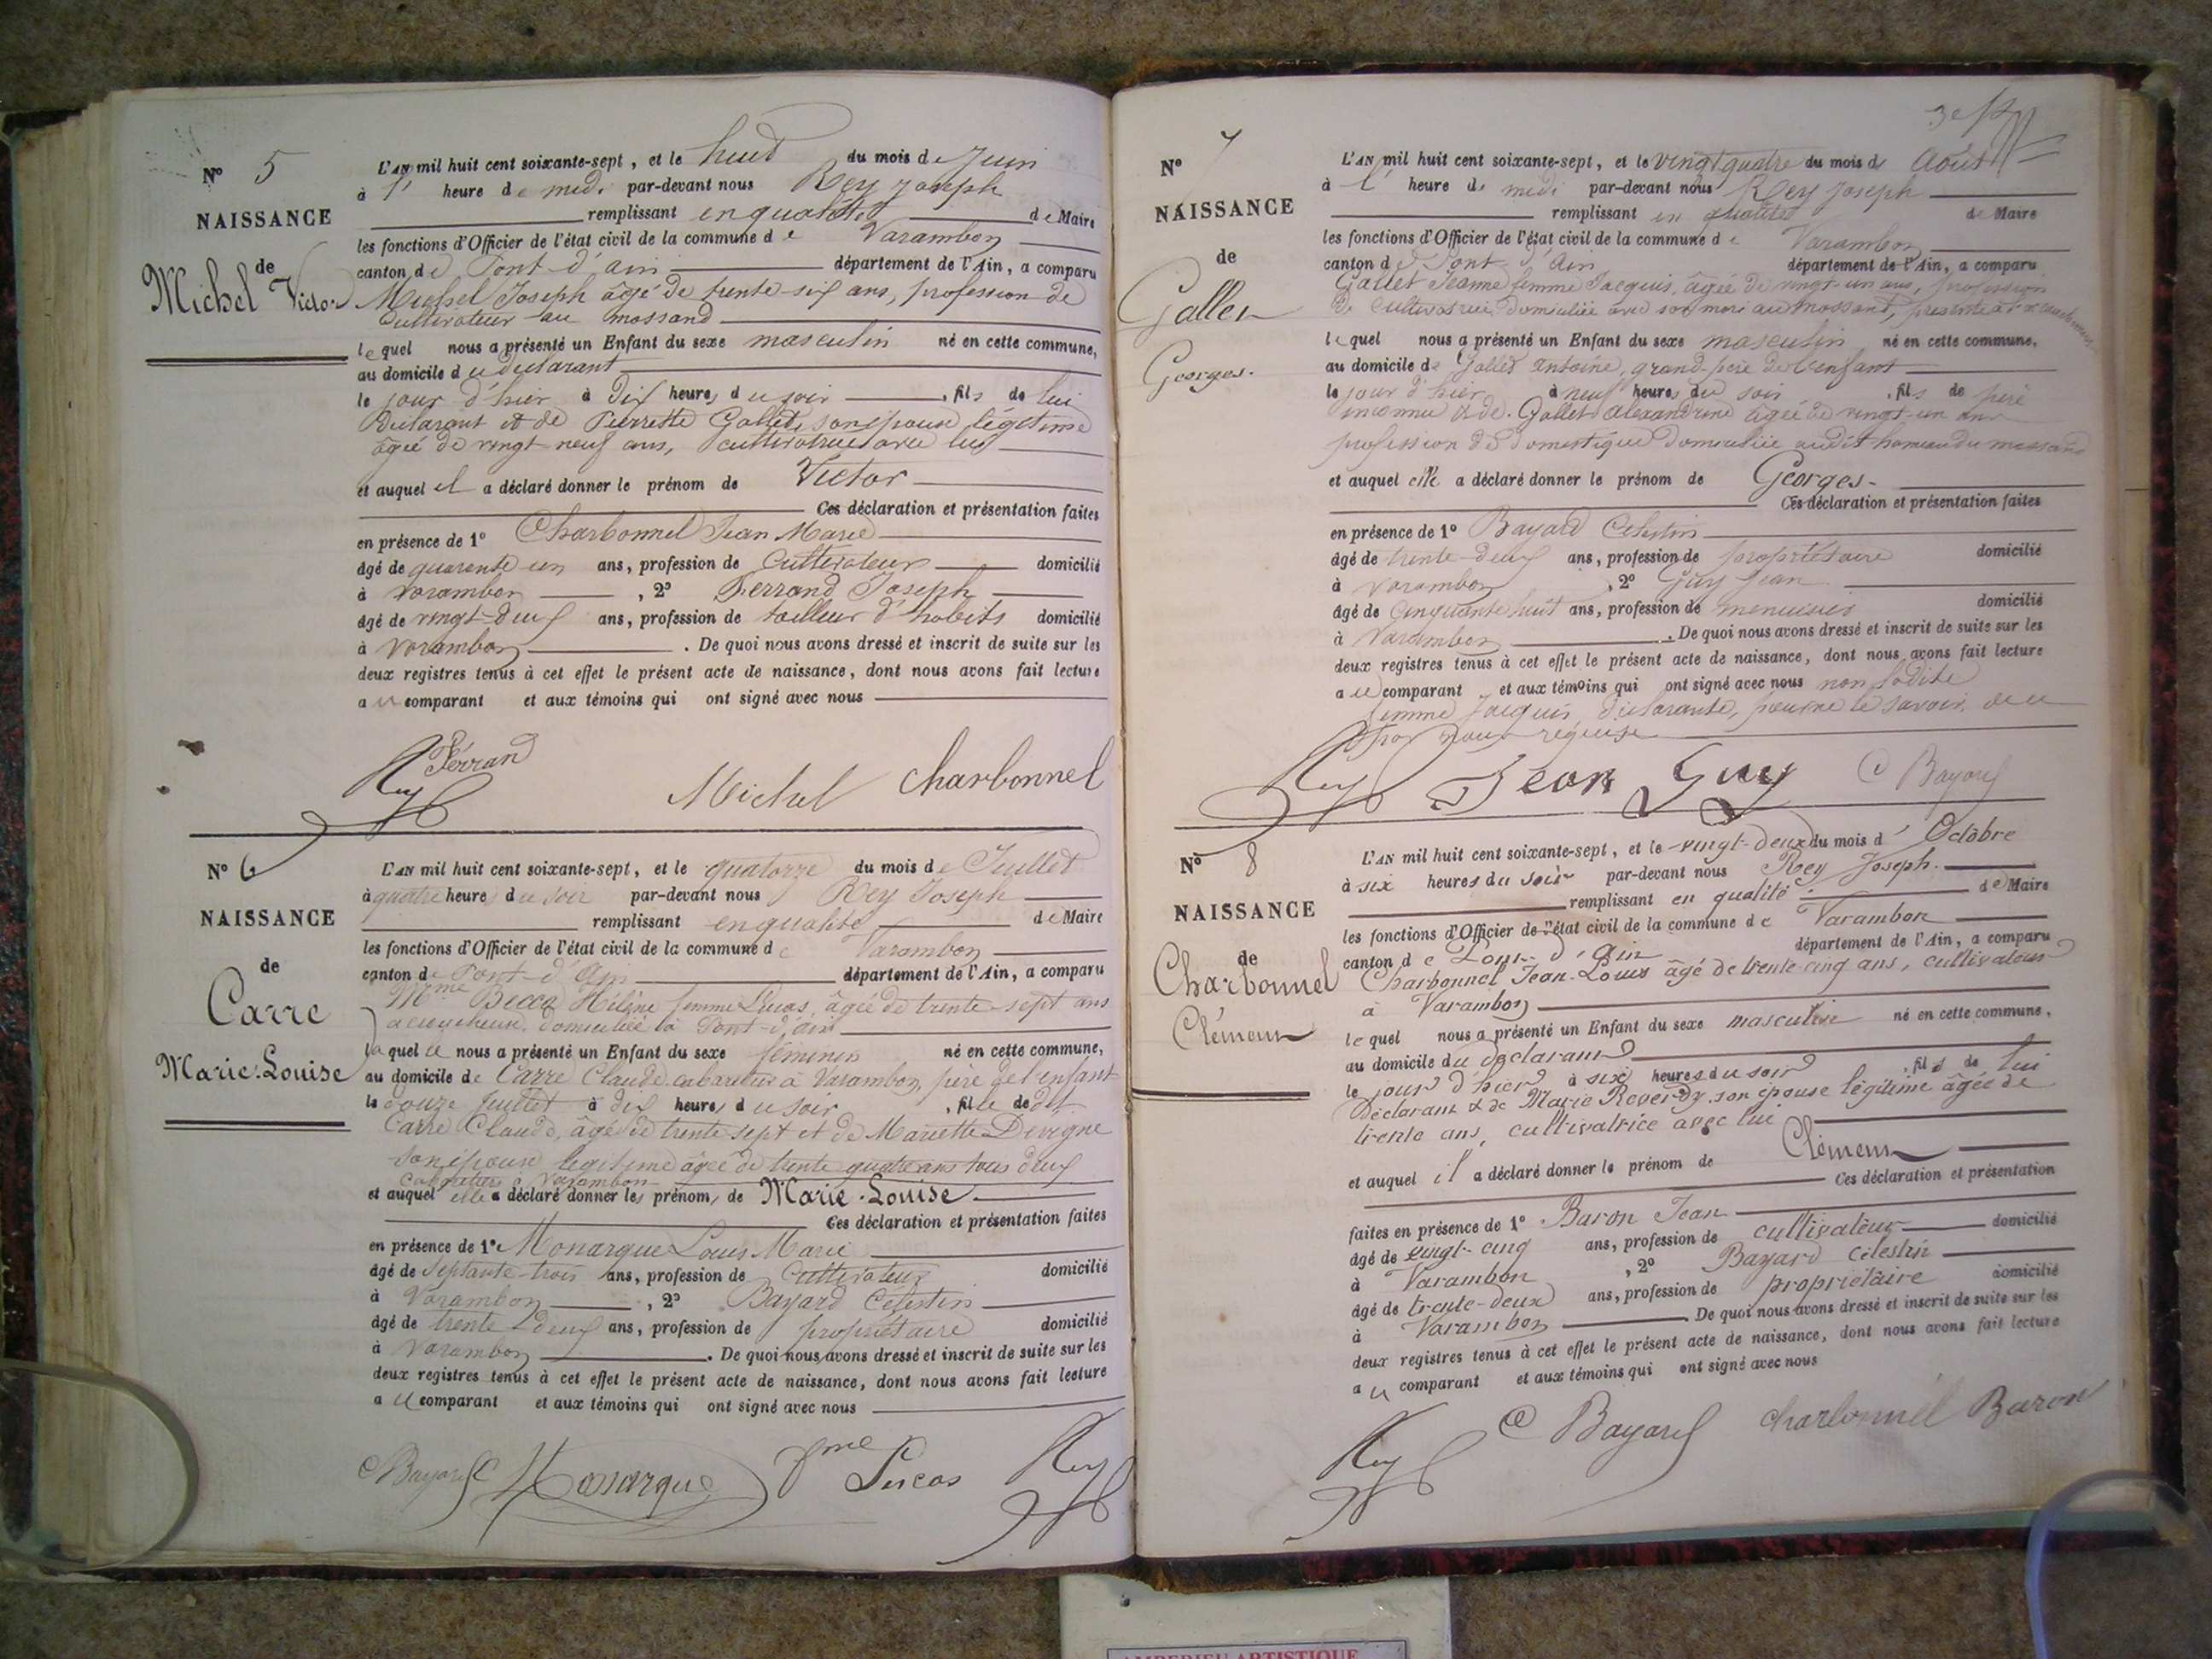 N° 5
NAISSANCE
de
Michel Victor
L'AN mil huit cent soixante-sept, et le huit du mois de Juin
à l' heure de midi par-devant nous Rey Joseph
remplissant en qualité de Maire
les fonctions d'Officier de l'état civil de la commune de Varambon
canton de Pont-d'ain département de l'Ain, a comparu
Michel Joseph âgé de trente-six ans, profession de
Cultivateur au mossand
lequel nous a présenté un Enfant du sexe masculin né en cette commune,
au domicile du déclarant
le jour d'hier à Dix heures du soir, fils de lui
Déclarant et de Pierrette Gallet, son épouse légitime
âgée de vingt-neuf ans, cultivatrice avec lui
et auquel il a déclaré donner le prénom de Victor
Ces déclaration et présentation faites
en présence de 1° Charbonnel Jean Marie
âgé de quarante un ans, profession de Cultivateur domicilié
à Varambon, 2° Ferrand Joseph
âgé de vingt-deux ans, profession de tailleur d'habits domicilié
à Varambon. De quoi nous avons dressé et inscrit de suite sur les
deux registres tenus à cet effet le présent acte de naissance, dont nous avons fait lecture
au comparant et aux témoins qui ont signé avec nous
Ferrand
Rey Michel Charbonnel
N° 6
NAISSANCE
de
Carre
Marie-Louise
L'AN mil huit cent soixante-sept, et le quatorze du mois de Juillet
à quatre heures du soir par-devant nous Rey Joseph
remplissant en qualité de Maire
les fonctions d'Officier de l'état civil de la commune de Varambon
canton de Pont-d'Ain département de l'Ain, a comparu
Mme Hélène femme Lucas, âgée de trente-sept ans
accoucheuse, domiciliée à Pont-d'ain
laquelle nous a présenté un Enfant du sexe féminin né en cette commune,
au domicile de Carre Claude cabaretier à Varambon, père de l'enfant
le douze Juillet à dix heures du soir, fille de dit
Carre Claude, âgé de trente sept et de Mariette
son épouse légitime âgée de trente quatre ans tous deux
cabaretiers à Varambon
et auquel elle a déclaré donner les prénoms de Marie-Louise
Ces déclaration et présentation faites
en présence de 1° Monarque Louis Marie
âgé de Septante-trois ans, profession de Cultivateur domicilié
à Varambon, 2° Bayard Celestin
âgé de trente-deux ans, profession de propriétaire domicilié
à Varambon. De quoi nous avons dressé et inscrit de suite sur les
deux registres tenus à cet effet le présent acte de naissance, dont nous avons fait lecture
au comparant et aux témoins qui ont signé avec nous
C Bayard Monarque fme Lucas Rey
N° 7
NAISSANCE
de
Gallet
Georges.
L'AN mil huit cent soixante-sept, et le vingt quatre du mois d' Août
à l' heure de midi par-devant nous Rey Joseph
remplissant en qualité de Maire
les fonctions d'Officier de l'état civil de la commune de Varambon
canton de Pont d'Ain département de l'Ain, a comparu
Gallet Jeanne femme Jacquis, âgée de vingt-un ans, profession
de cultivatrice, domiciliée avec son mari au mossand, présente à l'accouchement
lequel nous a présenté un Enfant du sexe masculin né en cette commune,
au domicile de Gallet Antoine, grand-père de l'enfant
le jour d'hier à neuf heures du soir, fils de père
inconnu & de Gallet Alexandrine âgée de vingt-un ans
profession de domestique domiciliée audit hameau du mossand
et auquel elle a déclaré donner le prénom de Georges-
Ces déclaration et présentation faites
en présence de 1° Bayard Celestin
âgé de trente-deux ans, profession de propriétaire domicilié
à Varambon, 2° Guy Jean
âgé de cinquante huit ans, profession de menuisier domicilié
à Varambon. De quoi nous avons dressé et inscrit de suite sur les
deux registres tenus à cet effet le présent acte de naissance, dont nous avons fait lecture
au comparant et aux témoins qui ont signé avec nous non ladite
femme Jacquis, déclarante, pour ne le savoir, de ce
par nous requise
Rey Jean Guy C Bayard
N° 8
NAISSANCE
de
Charbonnel
Clément
L'AN mil huit cent soixante-sept, et le vingt-deux du mois d' Octobre
à six heures du soir par-devant nous Rey Joseph.
remplissant en qualité de Maire
les fonctions d'Officier de l'état civil de la commune de Varambon
canton de Pont-d'Ain département de l'Ain, a comparu
Charbonnel Jean-Louis âgé de trente-cinq ans, cultivateur
à Varambon
lequel nous a présenté un Enfant du sexe masculin né en cette commune,
au domicile du déclarant
le jour d'hier à six heures du soir, fils de lui
Déclarant & de Marie Reverdy, son épouse légitime âgée de
trente ans, cultivatrice avec lui
et auquel il a déclaré donner le prénom de Clément
Ces déclaration et présentation
faites en présence de 1° Baron Jean
âgé de vingt-cinq ans, profession de cultivateur domicilié
à Varambon, 2° Bayard Célestin
âgé de trente-deux ans, profession de propriétaire domicilié
à Varambon. De quoi nous avons dressé et inscrit de suite sur les
deux registres tenus à cet effet le présent acte de naissance, dont nous avons fait lecture
au comparant et aux témoins qui ont signé avec nous
Rey C Bayard Charbonnel Baron